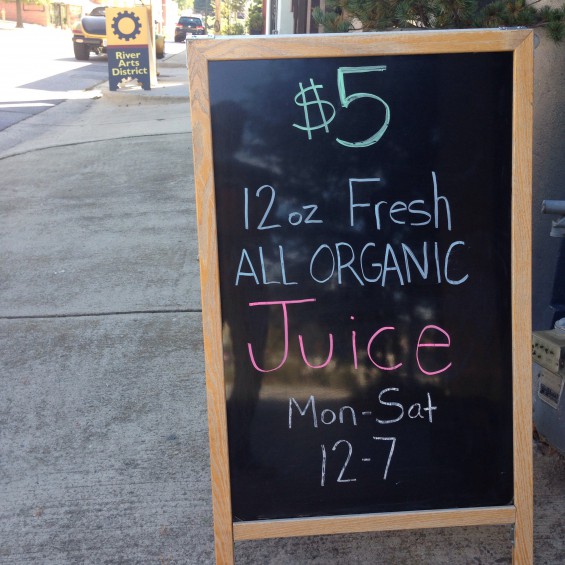 River
Arts
District
$5
12 oz Fresh
ALL ORGANIC
Juice
Mon-Sat
12-7